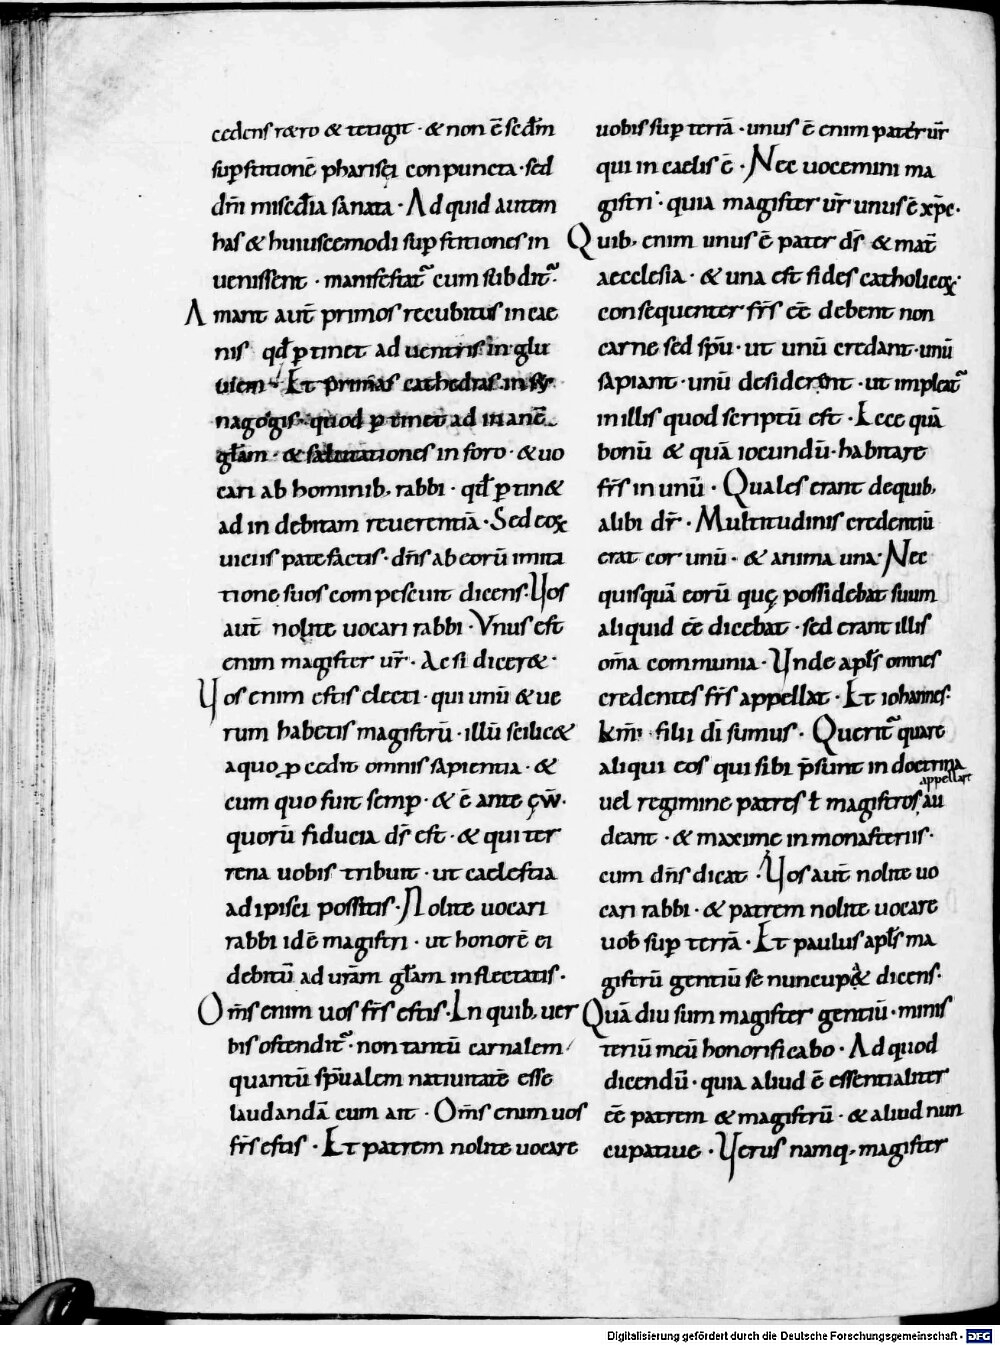 cedens retro & tetigit · & non ē sedm̄
suꝑstitionē pharisei conpuncta · sed
dn̄i misedia sanata · Ad quid autem
has & huiuscemodi suꝑstitiones in
uenissent · manifestat᷑ cum subdit᷑·
Amant aut̄ primos recubitus in cae
nis qd̄ ꝑtinet ad uentris inglu
uiem · Et primas cathedras in sy
nagogis · quod ꝑtinet ad inanē
gl̄am · & salutationes in foro · & uo
cari ab hominib; rabbi · qd̄ ꝑtin&
ad indebitam reuerentiā · Sed eoꝝ
uiciis patefactis · dn̄s ab eorū imita
tione suos compescuit dicens · Vos
aut̄ nolite uocari rabbi · Vnus est
enim magister ur̄ · Ac si dicer& ·
Vos enim estis electi · qui unū & ue
rum habetis magistrū · illū scilic&
a quo ꝓcedit omnis sapientia · &
cum quo fuit semꝑ · & ē ante ęuū ·
quorū fiducia ds̄ est · & qui ter
rena uobis tribuit · ut caelestia
adipisci possitis · Nolite uocari
rabbi idē magistri · ut honorē ei
debitū ad urām gl̄am inflectatis ·
Om̄s enim uos frs̄ estis · In quib; uer
bis ostendit᷑ · non tantū carnalem
quantū sp̄ualem natiuitatē esse
laudandā cum ait · Om̄s enim uos
frs̄ estis · Et patrem nolite uocare
uobis suꝑ terrā · unus ē enim pater ur̄
qui in caelis ē · Nec uocemini ma
gistri · quia magister ur̄ unus ē xp̄c ·
Quib; enim unus ē pater ds̄ & mat̄
aecclesia · & una est fides catholicoꝝ·
consequenter frs̄ ēē debent non
carne sed sp̄u · ut unū credant · unū
sapiant · unū desiderent · ut impleat᷑
in illis quod scriptū est · Ecce quā
bonū & quā iocundū · habitare
frs̄ in unū · Quales erant de quib;
alibi dr̄ · Multitudinis credentiū
erat cor unū · & anima una · Nec
quisquā eorū quę possidebat suum
aliquid ēē dicebat · sed erant illis
om̄a communia · Vnde apls̄ omnes
credentes frs̄ appellat · Et iohannes·
km̄i · filii di sumus · Querit᷑ quare
aliqui eos qui sibi p̄sunt in doctrina
uel regimine patres ł magistros appellare au
deant · & maxime in monasteriis ·
cum dn̄s dicat · Vos aut̄ nolite uo
cari rabbi · & patrem nolite uocare
uob̄ suꝑ terrā · Et paulus apls̄ ma
gistrū gentiū se nuncup& dicens·
Quā diu sum magister gentiū · minis
teriū meū honorificabo · Ad quod
dicendū · quia aliud ē essentialiter
ēē patrem & magistrū · & aliud nun
cupatiue · Verus namq; magister
Digitalisierung gefördert durch die Deutsche Forschungsgemeinschaft - DFG